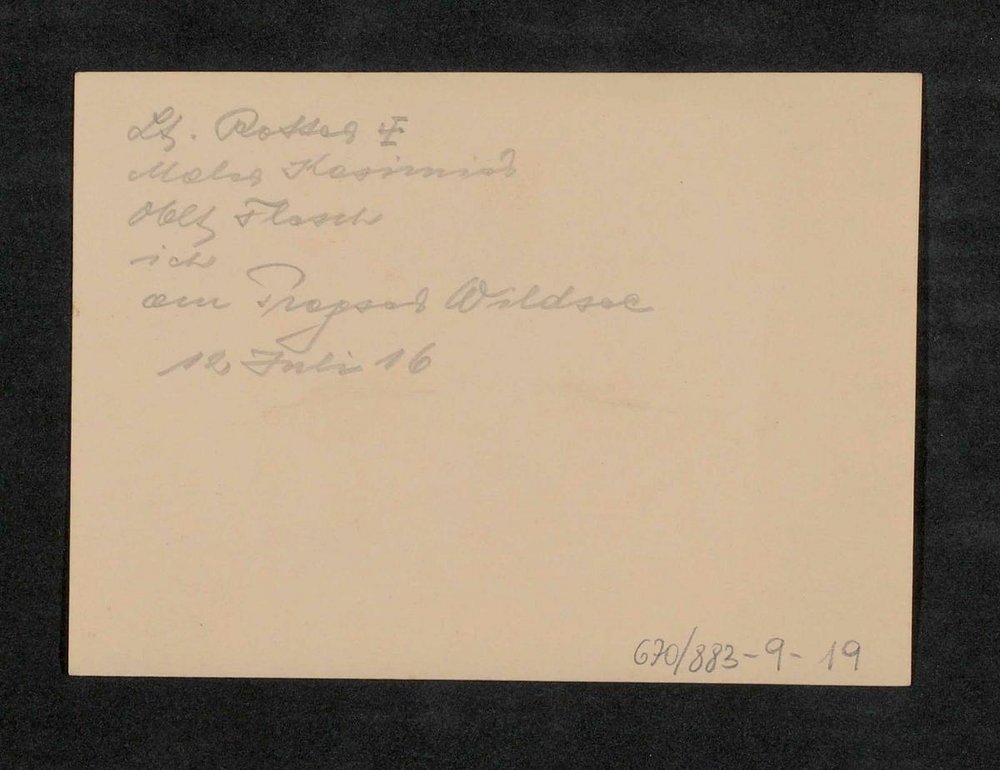 Lt. Rotter I
Maler Kasimir
Oblt Flasch
ich
am Pragser Wildsee
12 Juli 16
670/883-9-19